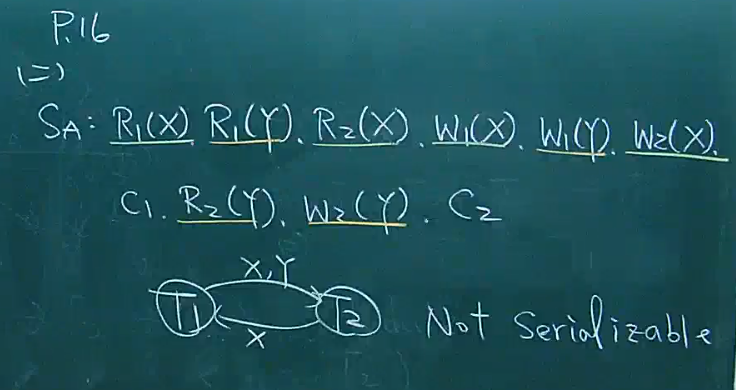 P.16
(二)
SA: R1(X) R1(Y). R2(X). W1(X). W1(Y). W2(X).
C1. R2(Y). W2(Y). C2
X,Y
T1 T2 Not Serializable
X